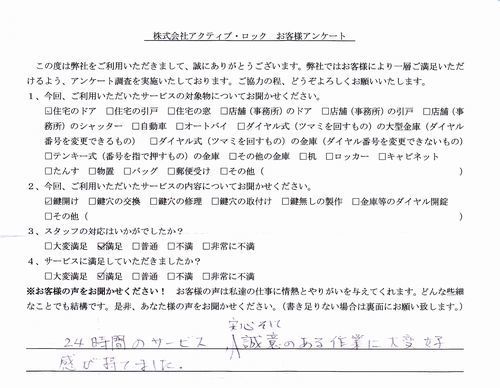 株式会社アクティブ・ロック　お客様アンケート
この度は弊社をご利用いただきまして、誠にありがとうございます。弊社ではお客様により一層ご満足いただ
けるよう、アンケート調査を実施いたしております。ご協力の程、どうぞよろしくお願いいたします。
1、今回、ご利用いただいたサービスの対象物についてお聞かせください。
☑住宅のドア　□住宅の引戸　□住宅の窓　□店舗（事務所）のドア　□店舗（事務所）の引戸　□店舗（事
務所）のシャッター　□自動車　□オートバイ　□ダイヤル式（ツマミを回すもの）の大型金庫（ダイヤル
番号を変更できるもの）　□ダイヤル式（ツマミを回すもの）の金庫（ダイヤル番号を変更できないもの）
□テンキー式（番号を指で押すもの）の金庫　□その他の金庫　□机　□ロッカー　□キャビネット
□たんす　□物置　□バッグ　□郵便受け　□その他（　）
2、今回、ご利用いただいたサービスの内容についてお聞かせください。
☑鍵開け　□鍵穴の交換　□鍵穴の修理　□鍵穴の取付け　□鍵無しの製作　□金庫等のダイヤル開錠
□その他（　）
3、スタッフの対応はいかがでしたか？
□大変満足　☑満足　□普通　□不満　□非常に不満
4、サービスに満足していただきましたか？
□大変満足　☑満足　□普通　□不満　□非常に不満
※お客様の声をお聞かせください！　お客様の声は私達の仕事に情熱とやりがいを与えてくれます。どんな些細
なことでも結構です。是非、あなた様の声をお聞かせください。（書き足りない場合は裏面にお願い致します。）
安心そして
24時間のサービス　誠意のある作業に大変好
感が持てました。